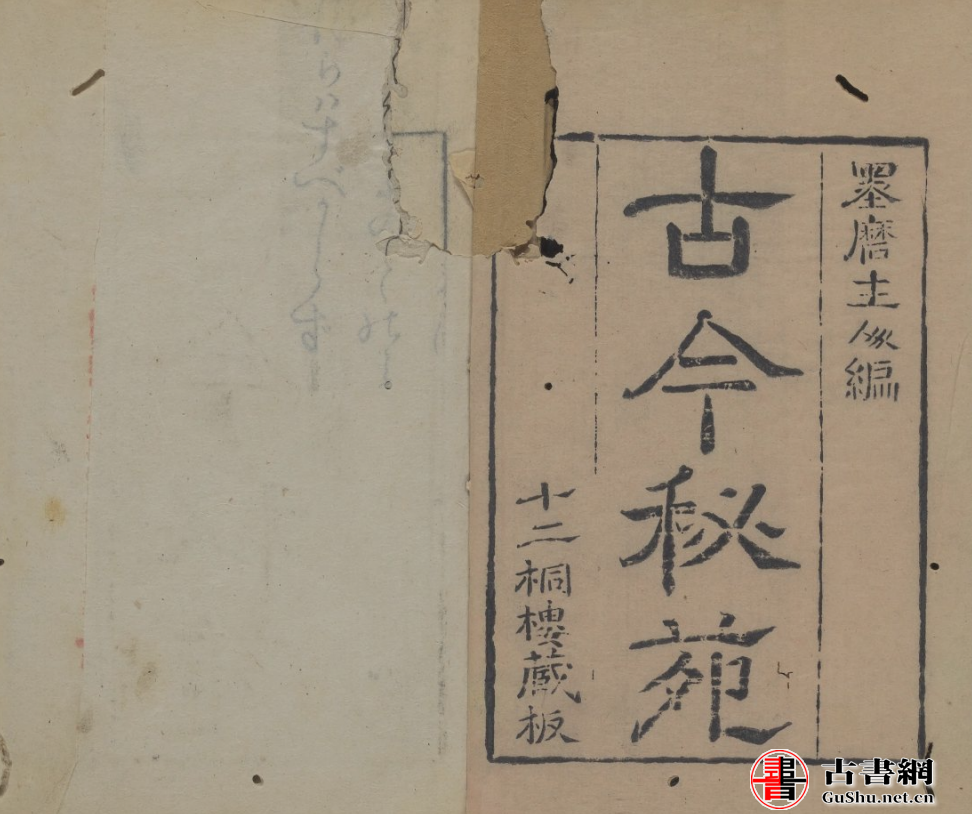 墨磨主人編
古今秘苑
十二桐樓藏板
書
古書網
GuShu.net.cn